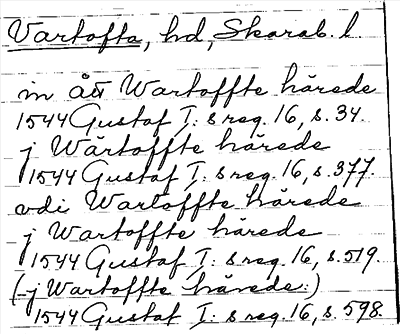 Vartofta, hd, Skarab. l.
in ått Wartoffte härede
1544 Gustaf I: s reg. 16, s. 34.
j Wärtoffte härede
1544 Gustaf I: s reg. 16, s. 377.
vdi Wartoffte härede
j Wartoffte härede
1544 Gustaf I: s reg. 16, s. 519.
(-j Wartoffte härede:)
1544 Gustaf I: s reg. 16, s. 598.